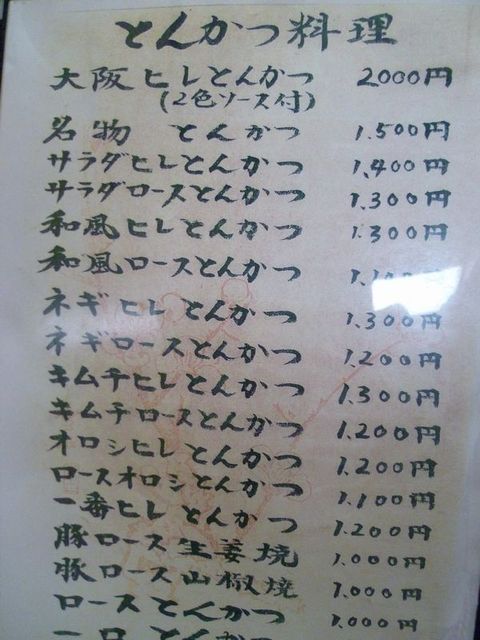 とんかつ料理
大阪ヒレとんかつ 2000円
(2色ソース付)
名物 とんかつ 1.500円
サラダヒレとんかつ 1.400円
サラダロースとんかつ 1.300円
和風ヒレとんかつ 1.300円
和風ロースとんかつ
ネギヒレとんかつ 1.300円
ネギロースとんかつ 1.200円
キムチヒレとんかつ 1.300円
キムチロースとんかつ 1.200円
オロシヒレとんかつ 1.200円
ロースオロシとんかつ 1.100円
一番ヒレとんかつ 1.200円
豚ロース生姜焼 1.000円
豚ロース山椒焼 1.000円
ロースとんかつ 1.000円
一口とんかつ